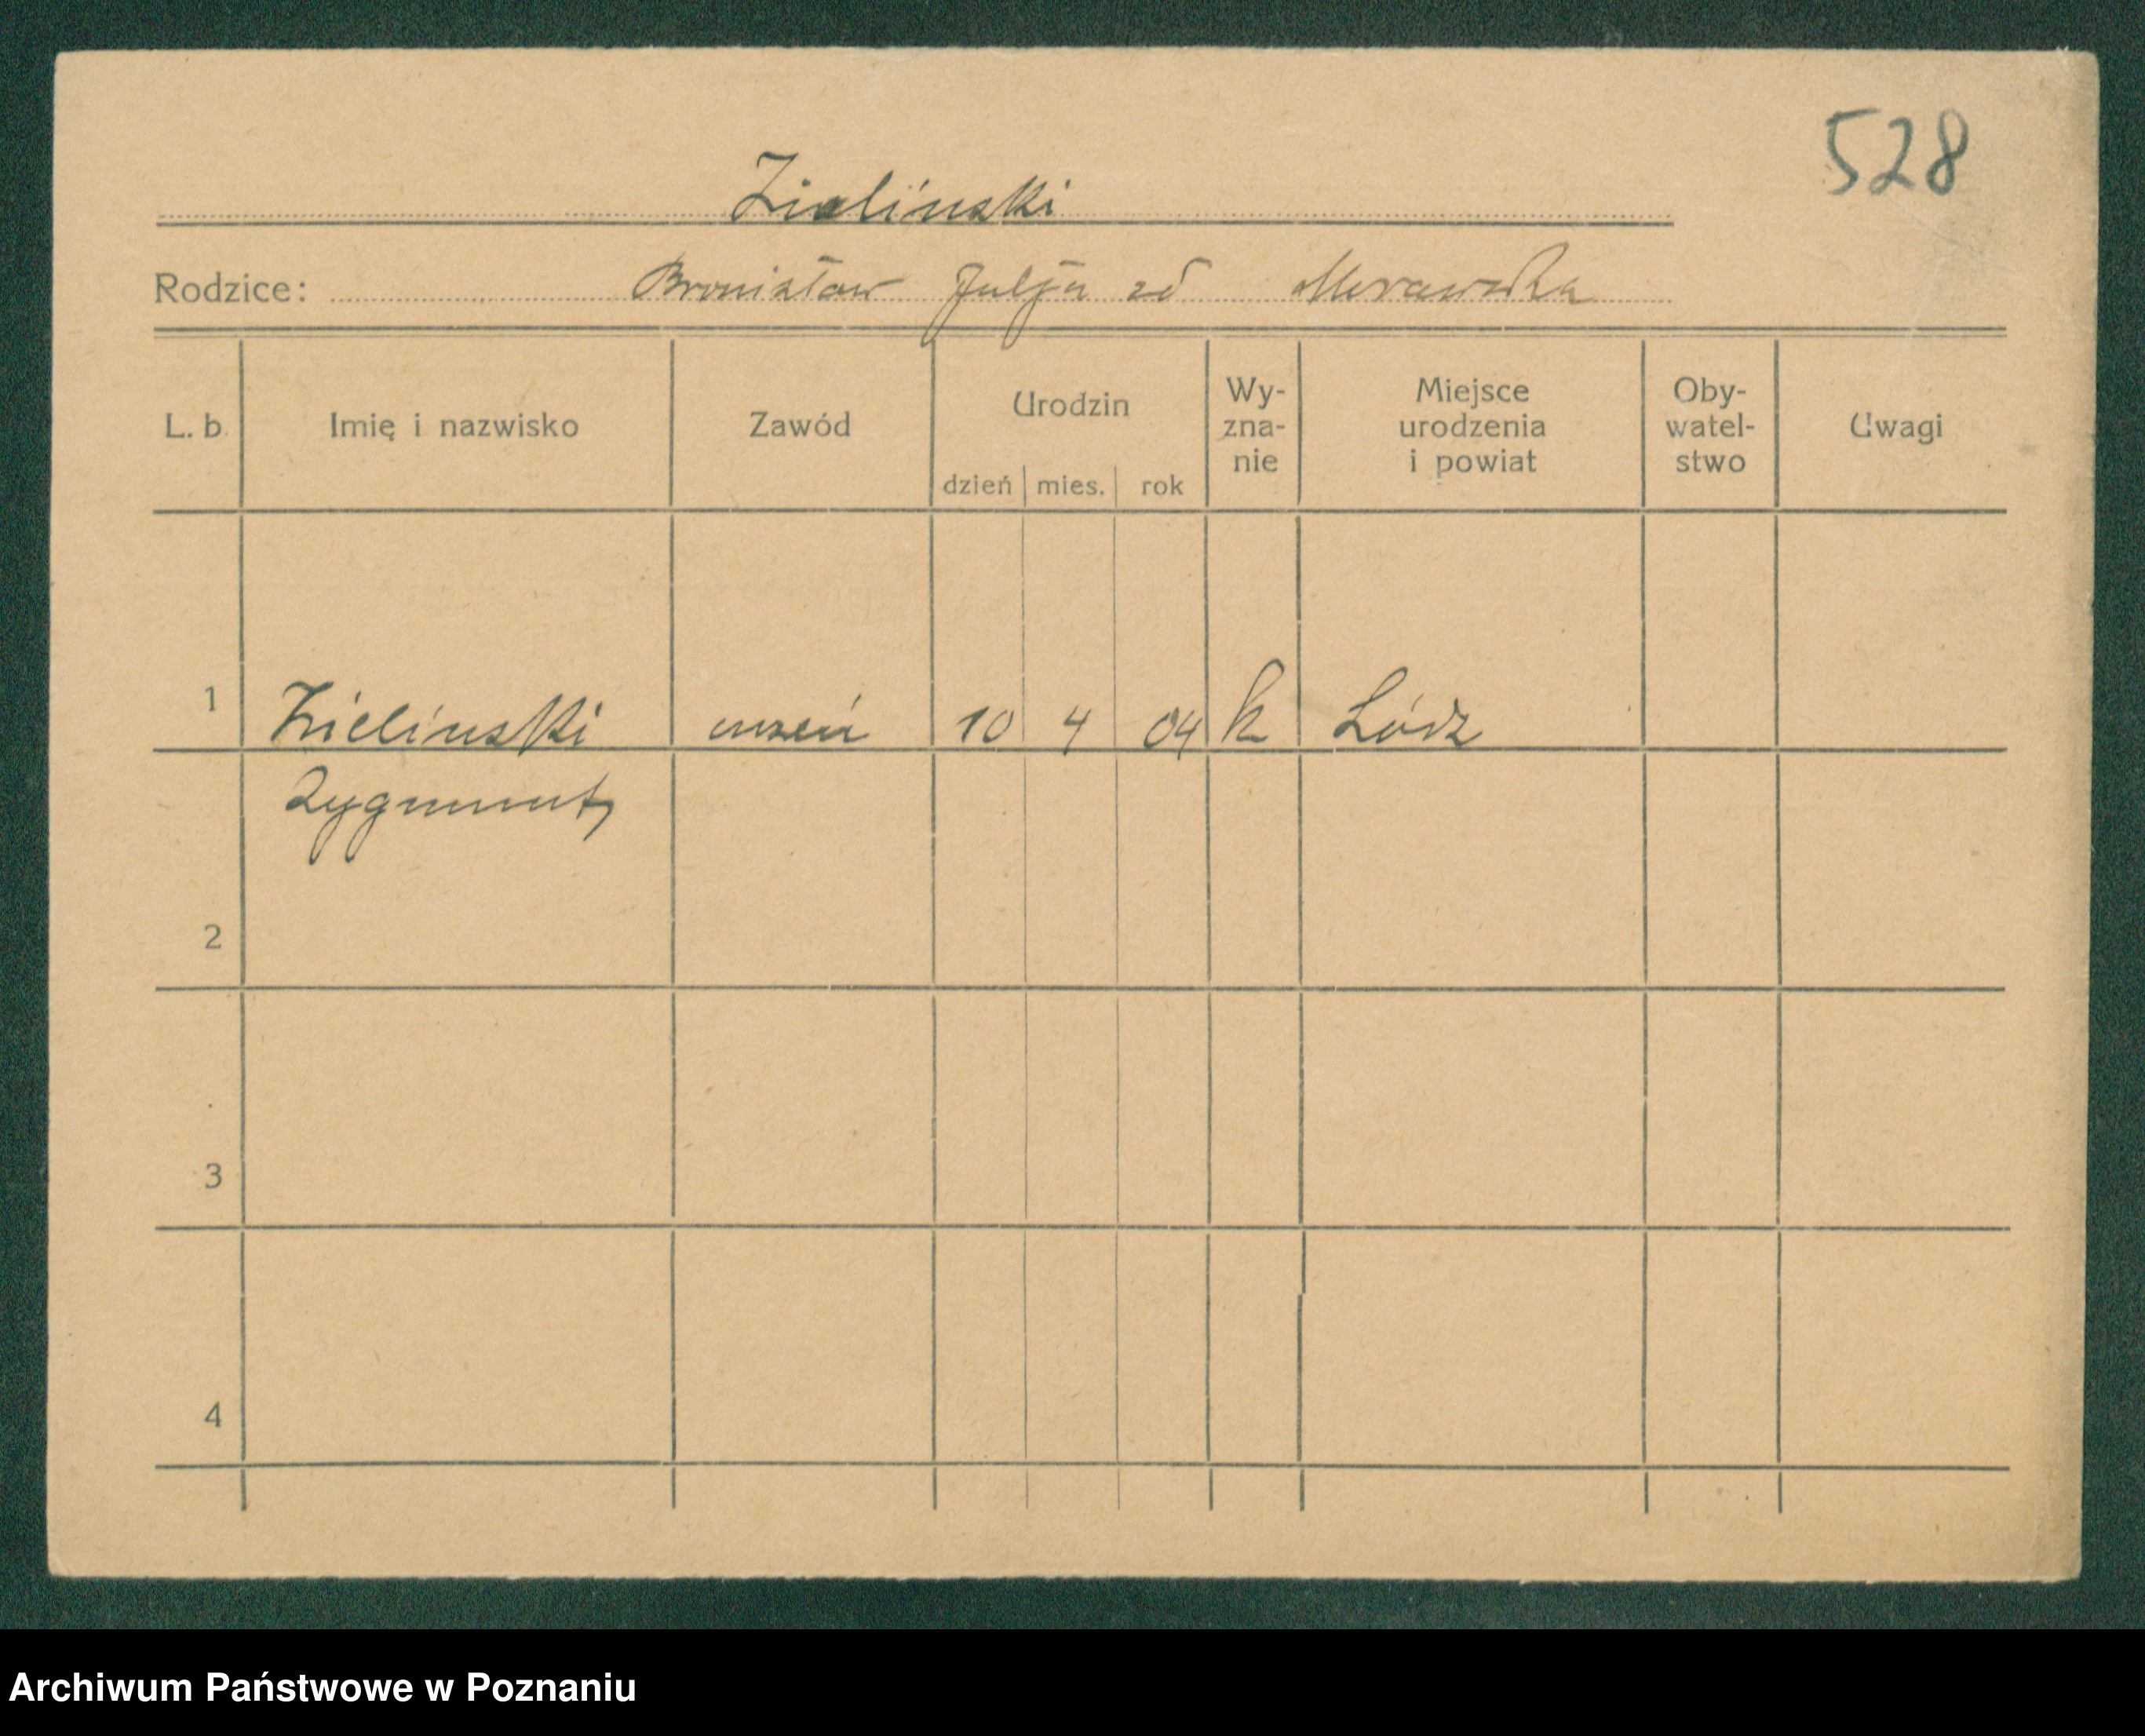 528
Zieliński
Rodzice: Bronisław Julja zd Morawska
L. b. Imię i nazwisko Zawód Urodzin dzień mies. rok Wy-znanie Miejsce urodzenia i powiat Oby-watel-stwo Uwagi
1 Zieliński uczeń 10 4 04 k Łódź
Zygmunt
2
3
4
Archiwum Państwowe w Poznaniu